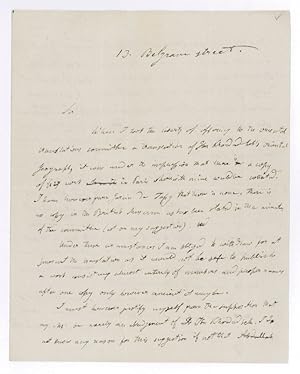 13. Belgrave street.
Sir
When I had the honor of offering to the oriental
translation committee a translation of Ibn Khordadbeh's oriental
geography it was under the impression that there a copy
of that work in Paris wherewith mine could be collated.
I have however given from there is none. There is
no copy in the British Museum as has been stated in the minutes
of the committee (not on my suggestion).
Under these circumstances I am obliged to withdraw for at
present the translation as it would not be safe to publish
a work consisting almost entirely of numbers and proper names
after one copy only however ancient it may be.
I must however justify myself from the supposition that
my is merely an abridgment of Ibn Khordadbeh. I do
not know any reason for this suggestion if not that Abdallah